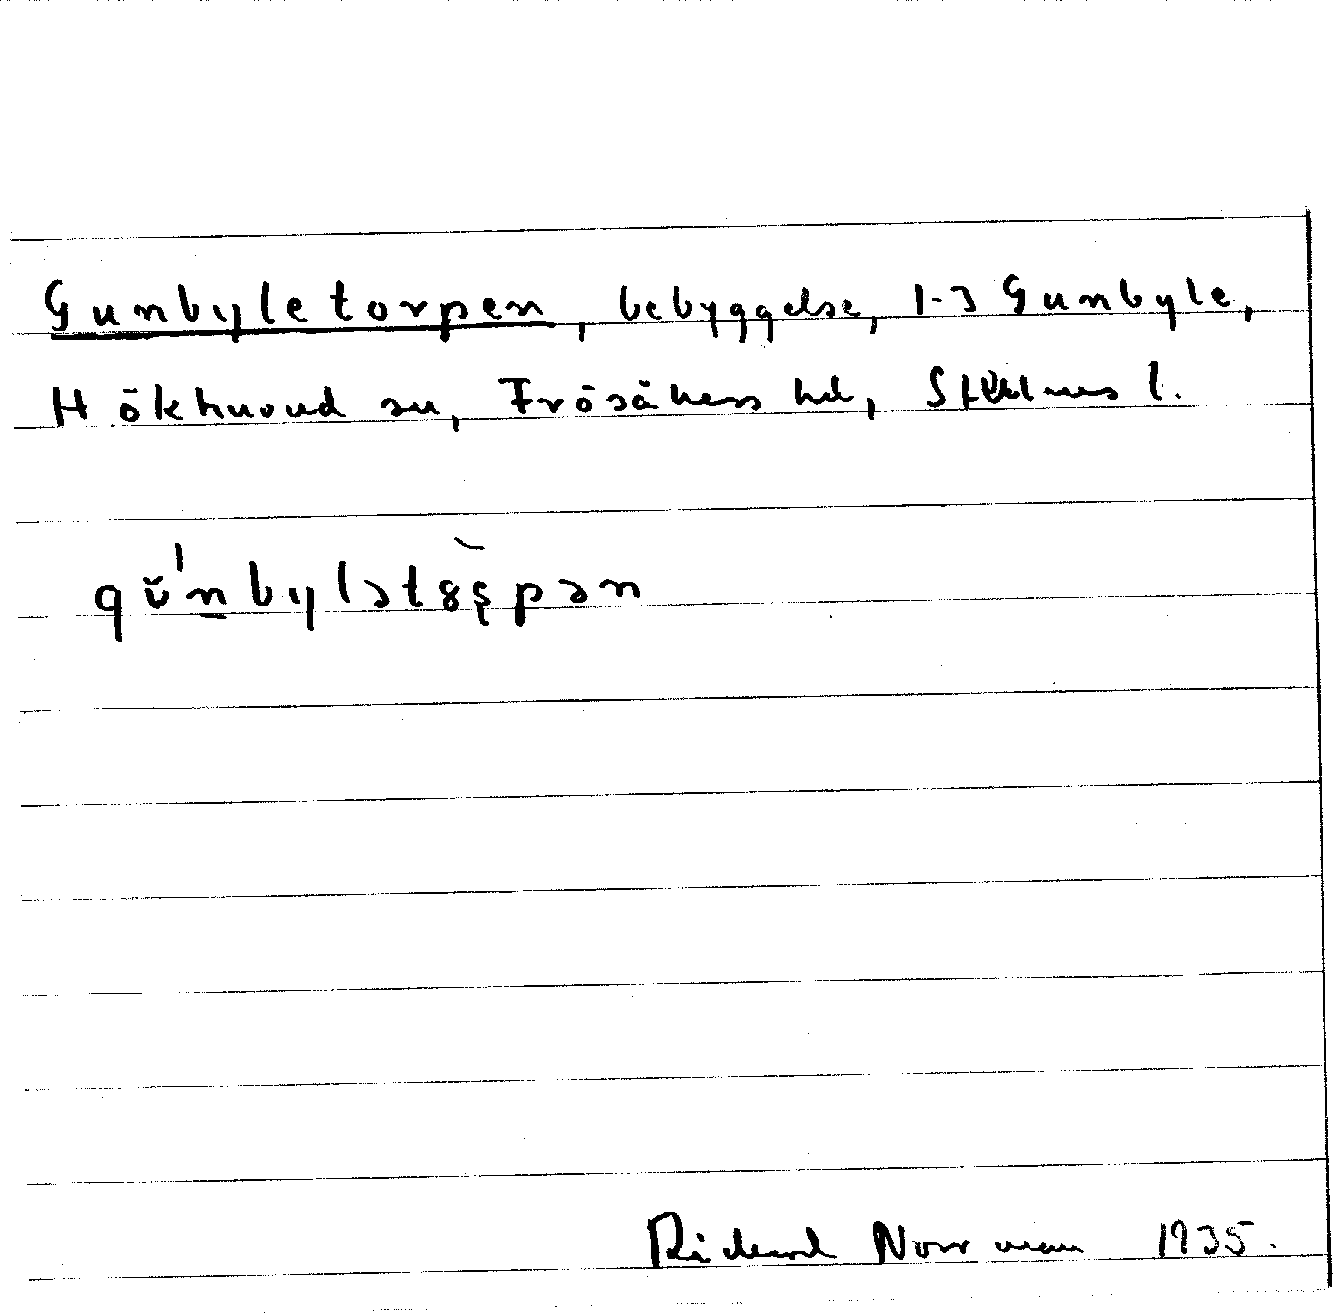 Gunbyletorpen, bebyggelse, 1-3 Gunbyle,
Hökhuvud sn, Frösåkers hd, Sthlms l.
gŭ'nbylətȣ̀s̨pən
Rickard Norrman 1935.